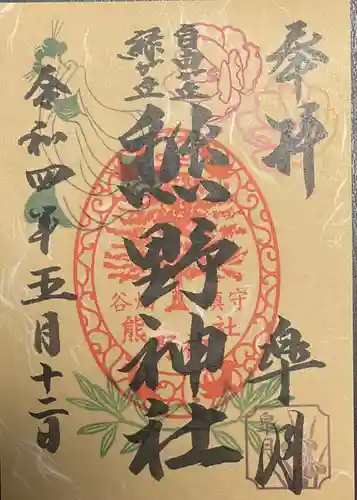 奉拝
皐月
自由が丘
熊野神社
令和四年五月十二日
守
鎮
谷
熊
社
皐月